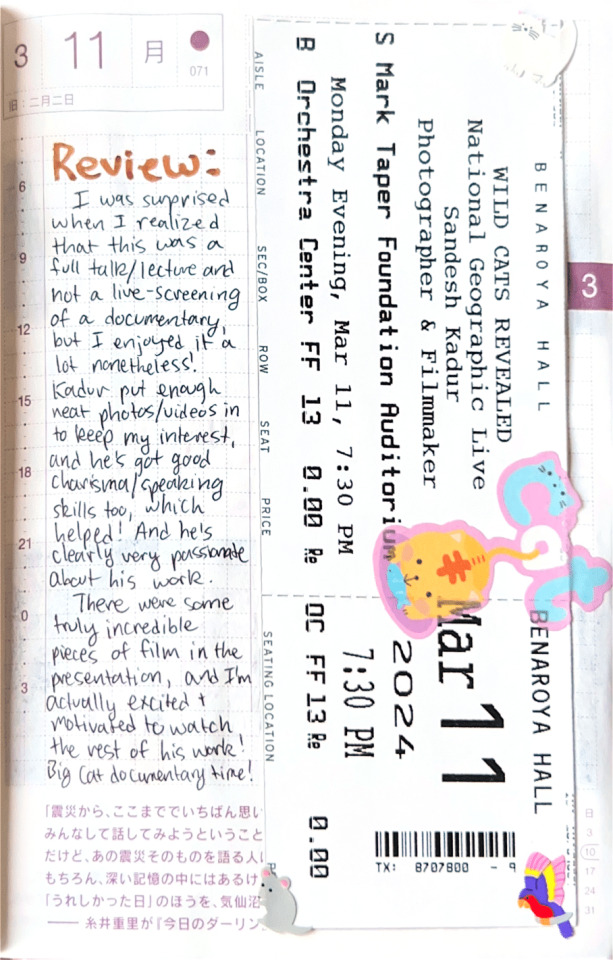 3 11 月
071
旧:二月二日
Review:
I was surprised
when I realized
that this was a
full talk/lecture and
not a live-screening
of a documentary,
but I enjoyed it a
lot nonetheless!
Kadur put enough
neat photos/videos in
to keep my interest,
and he's got good
charisma/speaking
skills too, which
helped! And he's
clearly very passionate
about his work.
There were some
truly incredible
pieces of film in the
presentation, and I'm
actually excited +
motivated to watch
the rest of his work!
Big Cat documentary time!
6
9
12
15
18
21
0
3
「震災から、ここまででいちばん思い
みんなして話してみようということ
だけど、あの震災そのものを語る人
もちろん、深い記憶の中にはあるけ
「うれしかった日」のほうを、気仙沼
—— 糸井重里が『今日のダーリン
BENAROYA HALL
WILD CATS REVEALED
National Geographic Live
Sandesh Kadur
Photographer & Filmmaker
S Mark Taper Foundation Auditorium
Monday Evening, Mar 11, 7:30 PM
B Orchestra Center FF 13 0.00 Re
AISLE LOCATION SEC/BOX ROW SEAT PRICE
BENAROYA HALL
Mar 11
2024
7:30 PM
OC FF 13 Re 0.00
SEATING LOCATION
TX: 8707800 - 9
Cat
3
日
3
10
17
24
31